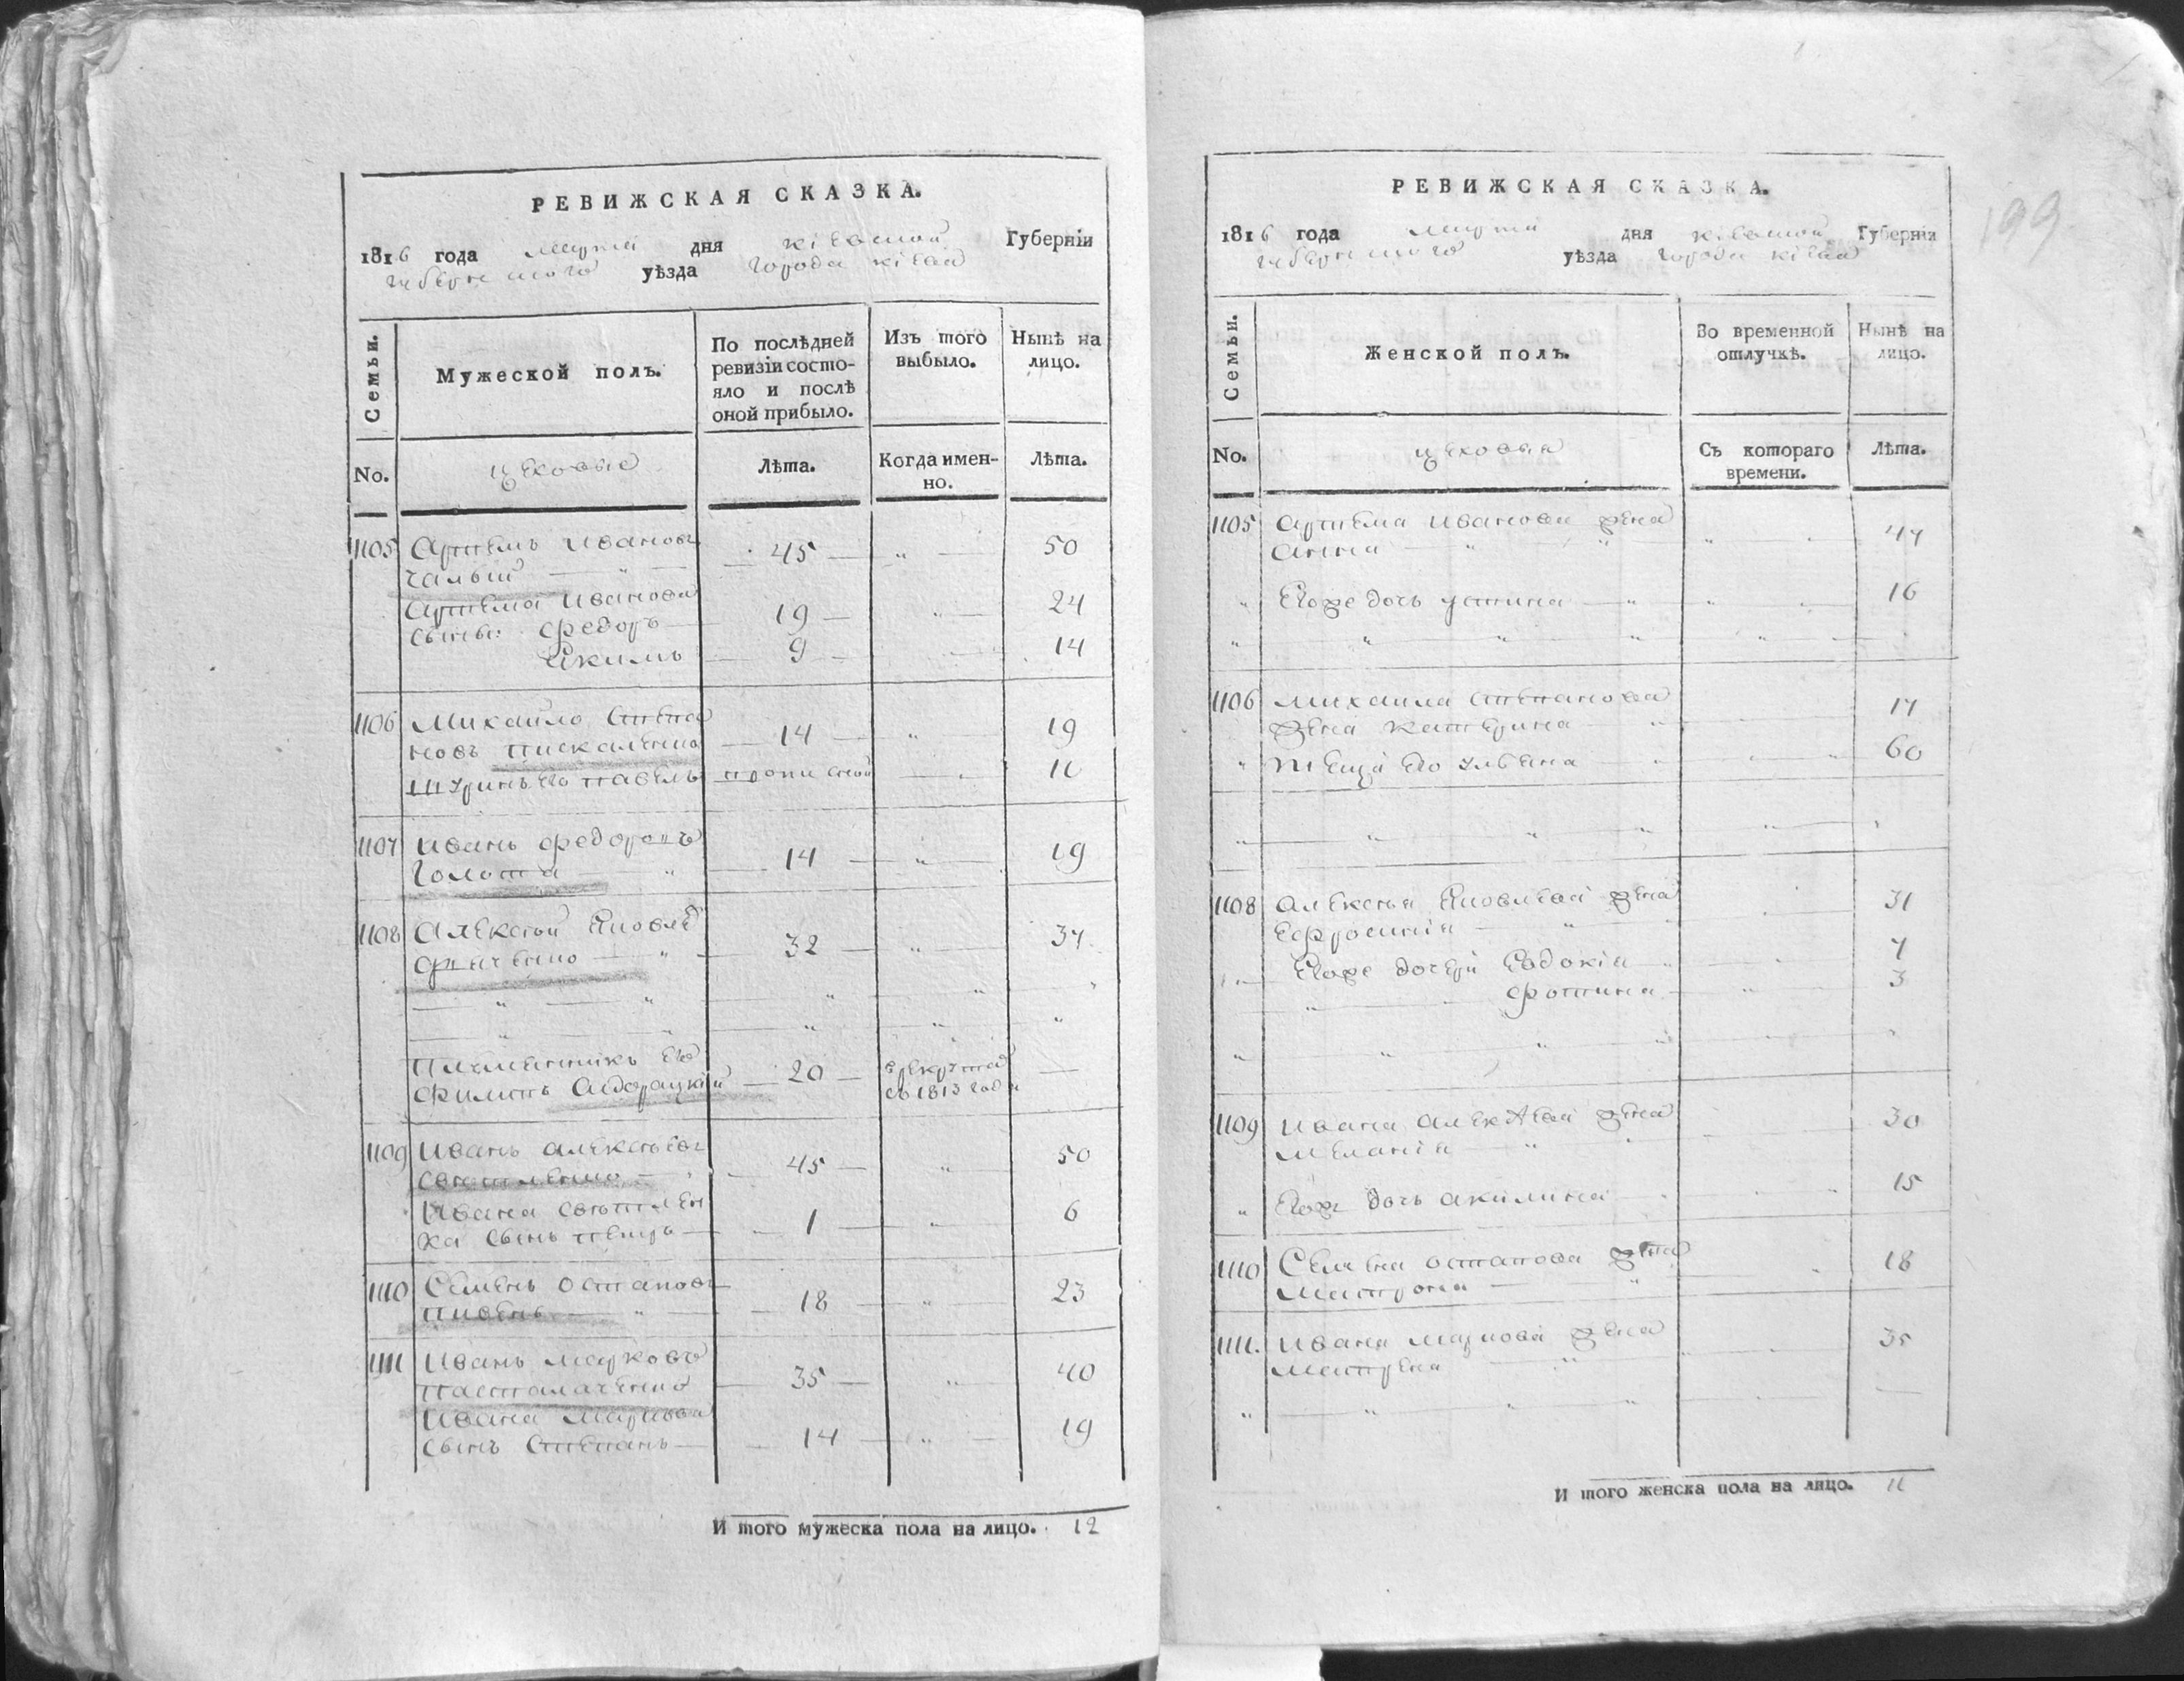 РЕВИЖСКАЯ СКАЗКА.
1816 года марта дня кіевской Губерніи
губернского уѣзда города кіева
Семьи.
Мужеской полъ.
По послѣдней
ревизіи состо-
яло и послѣ
оной прибыло.
Изъ того
выбыло.
Нынѣ на
лицо.
No.
цеховые
Лѣта.
Когда имен-
но.
Лѣта.
1105 Артемъ Ивановъ
чалый 45 50
Артема Иванова
сыны: Федоръ 19 24
Якимъ 9 14
1106 Михайло Степа
новъ пискаленко 14 19
шуринъ его павелъ прописной
1107 Иванъ федоровъ
Голота 14 19
1108 Алексей Яковлевъ
32 37
племенникъ его
Филипъ 20 в рекруты
въ 1813 году
1109 Иванъ алексѣевъ
свитленко 45 50
Ивана свѣтлен
ка сынъ петръ 1 6
1110 Семенъ остаповъ
18 23
1111 Иванъ марковъ
35 40
Ивана Маркова
сынъ Степанъ 14 19
И того мужеска пола на лицо. 12
199
РЕВИЖСКАЯ СКАЗКА.
1816 года марта дня кіевской Губерніи
губернского уѣзда города кіева
Семьи.
Женской полъ.
Во временной
отлучкѣ.
Нынѣ на
лицо.
No.
цеховыя
Съ котораго
времени.
Лѣта.
1105 Артема Иванова жена
анна 47
Егоже дочь устина 16
1106 Михаила Степанова
жена катерина 17
теща его улвяна 60
1108 алексея Яковлева жена
Ефросинія 31
Егоже дочери Евдокія 7
Фотина 3
1109 Ивана алексѣева жена
меланія 30
Егож дочь акилина 15
1110 Семена остапова жена
матрона 18
1111. Ивана Маркова жена
матрена 35
И того женска пола на лицо. 11